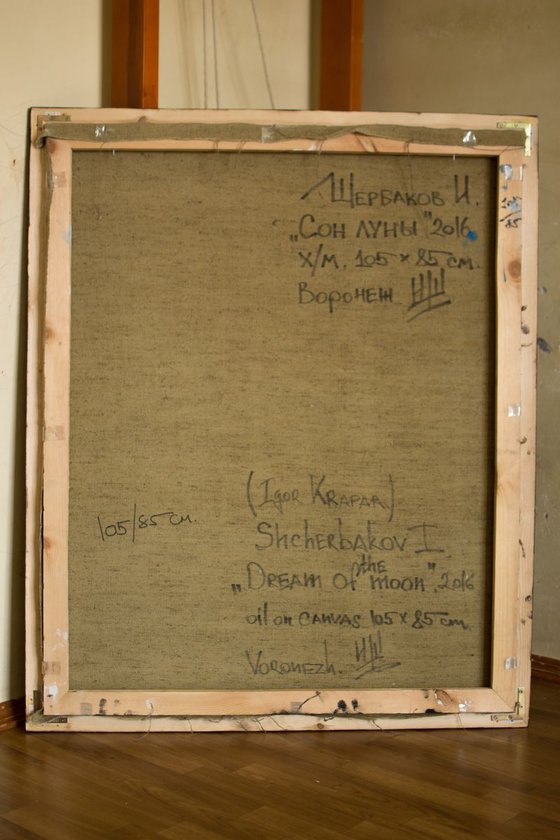 Щербаков И.
„Сон луны" 2016
х/м. 105 × 85 см.
Воронеж
105/85 см.
(Igor Krapar)
Shcherbakov I.
„Dream of the moon", 2016
oil on canvas 105 × 85 cm.
Voronezh.